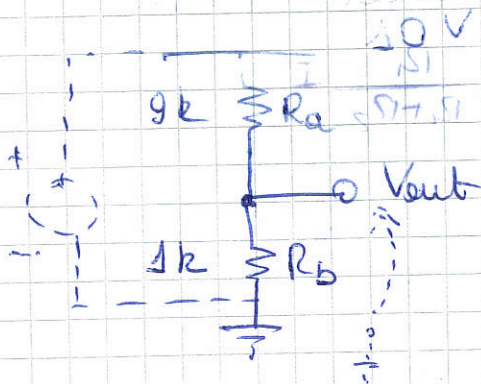 10 V
9k Ra
+
+
Vout
-
1k Rb